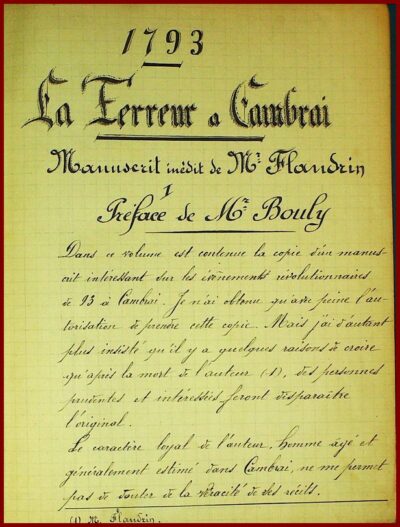 1793
La Terreur a Cambrai
Manuscrit inédit de Mr. Flandrin
I
Préface de Mr. Bouly
Dans ce volume est contenue la copie d'un manus-
crit intéressant sur les évènements révolutionnaires
de 93 à Cambrai. Je n'ai obtenu qu'avec peine l'au-
torisation de prendre cette copie. Mais j'ai d'autant
plus insisté qu'il y a quelques raisons de croire
qu'après la mort de l'auteur (1), des personnes
prudentes et intéressées feront disparaitre
l'original.
Le caractère loyal de l'auteur, homme âgé et
généralement estimé dans Cambrai, ne me permet
pas de douter de la véracité de ses récits.
(1) M. Flandrin.